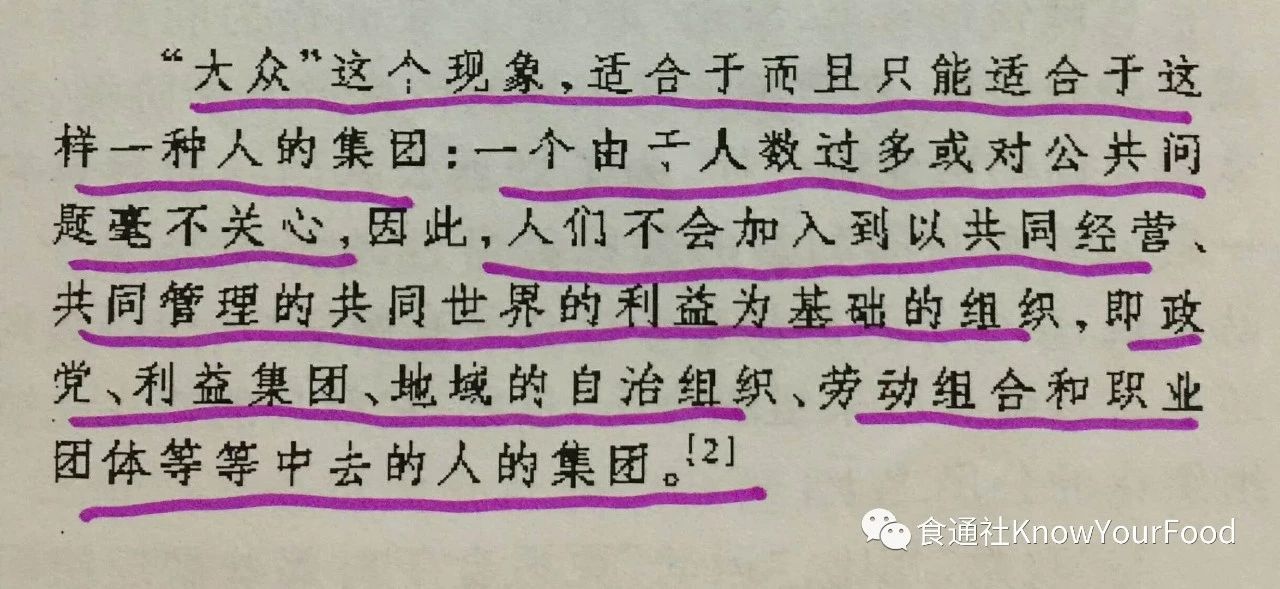 “大众”这个现象，适合于而且只能适合于这
样一种人的集团：一个由于人数过多或对公共问
题毫不关心，因此，人们不会加入到以共同经营、
共同管理的共同世界的利益为基础的组织，即政
党、利益集团、地域的自治组织、劳动组合和职业
团体等等中去的人的集团。[2]
食通社KnowYourFood